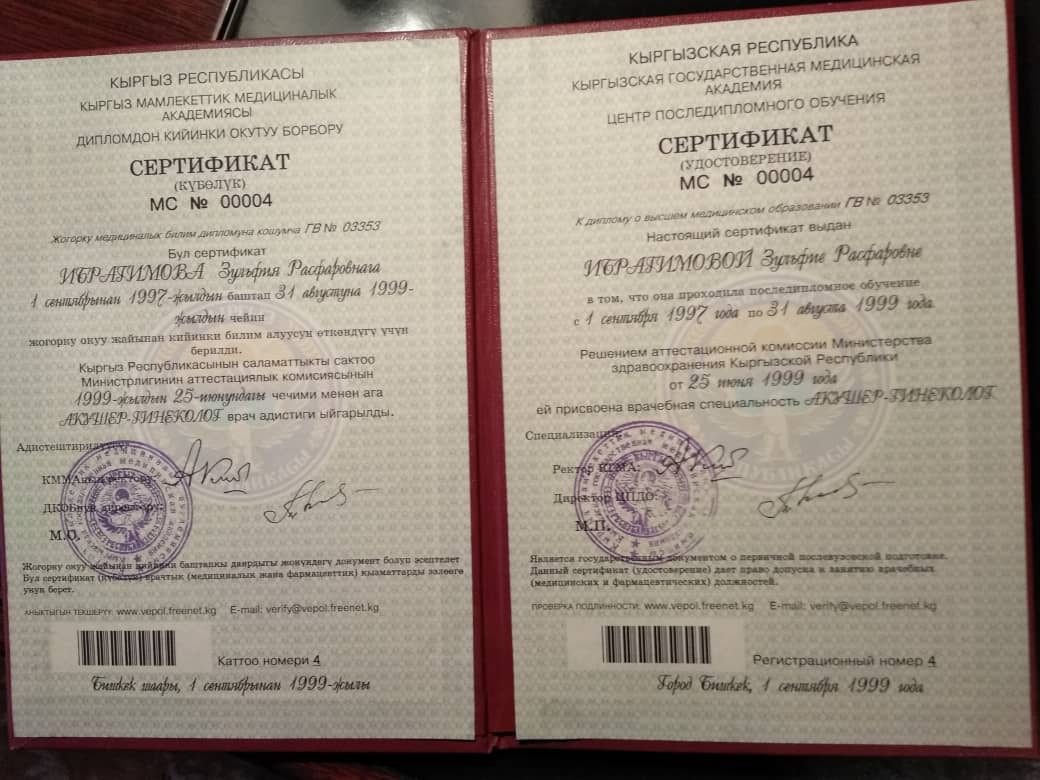 КЫРГЫЗ РЕСПУБЛИКАСЫ
КЫРГЫЗ МАМЛЕКЕТТИК МЕДИЦИНАЛЫК
АКАДЕМИЯСЫ
ДИПЛОМДОН КИЙИНКИ ОКУТУУ БОРБОРУ
СЕРТИФИКАТ
(КҮБӨЛҮК)
МС № 00004
Жогорку медициналык билим дипломуна кошумча ГВ № 03353
Бул сертификат
ИБРАГИМОВА Зульфия Расфаровнага
1 сентябрынан 1997-жылдын баштап 31 августуна 1999-
жылдын чейин
жогорку окуу жайынан кийинки билим алуусун өткөндүгү үчүн
берилди.
Кыргыз Республикасынын саламаттыкты сактоо
Министрлигинин аттестациялык комисиясынын
1999-жылдын 25-июнундагы чечими менен ага
АКУШЕР-ГИНЕКОЛОГ врач адистиги ыйгарылды.
Адистештирилүүчү
КММАнын ректору:
ДКОБнун директору:
М.О.
Жогорку окуу жайынан кийинки баштапкы даярдыгы жөнүндөгү документ болуп эсептелет
Бул сертификат (күбөлүк) врачтык (медициналык жана фармацевттик) кызматтарды ээлөөгө
укук берет.
АНЫКТЫГЫН ТЕКШЕРҮҮ: www.vepol.freenet.kg E-mail: verify@vepol.freenet.kg
Каттоо номери 4
Бишкек шаары, 1 сентябрынан 1999-жылы
КЫРГЫЗСКАЯ РЕСПУБЛИКА
КЫРГЫЗСКАЯ ГОСУДАРСТВЕННАЯ МЕДИЦИНСКАЯ
АКАДЕМИЯ
ЦЕНТР ПОСЛЕДИПЛОМНОГО ОБУЧЕНИЯ
СЕРТИФИКАТ
(УДОСТОВЕРЕНИЕ)
МС № 00004
К диплому о высшем медицинском образовании ГВ № 03353
Настоящий сертификат выдан
ИБРАГИМОВОЙ Зульфие Расфаровне
в том, что она проходила последипломное обучение
с 1 сентября 1997 года по 31 августа 1999 года
Решением аттестационной комиссии Министерства
здравоохранения Кыргызской Республики
от 25 июня 1999 года
ей присвоена врачебная специальность АКУШЕР-ГИНЕКОЛОГ
Специализация
Ректор КГМА:
Директор ЦПДО:
М.П.
Является государственным документом о первичной послевузовской подготовке.
Данный сертификат (удостоверение) дает право допуска к занятию врачебных
(медицинских и фармацевтических) должностей.
ПРОВЕРКА ПОДЛИННОСТИ: www.vepol.freenet.kg E-mail: verify@vepol.freenet.kg
Регистрационный номер 4
Город Бишкек, 1 сентября 1999 года